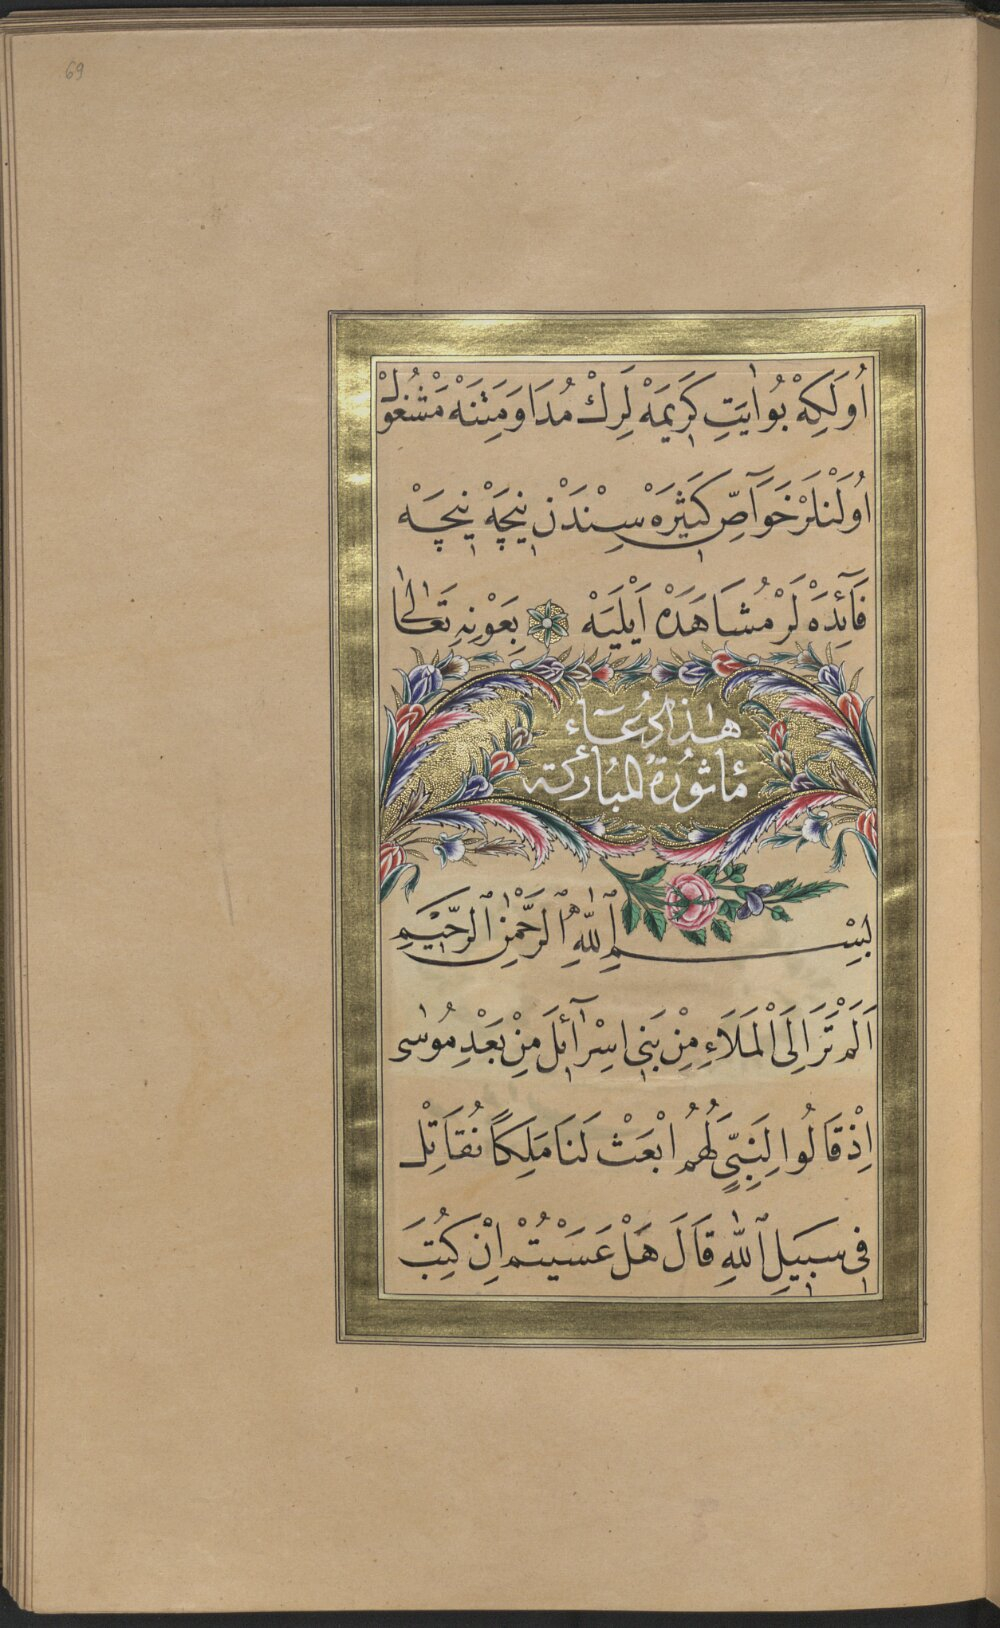 69
اُولَكِهْ بُو اٰيَتِ كَرِيمَهْ لَرِكْ مُدَاوَمِتِنَهْ مَشْغُولْ
اُولَنْلَرْ خَوَآصِّ كَثِيرَهْ سِنْدَنْ نِيچَهْ نِيچَهْ
فَآئِدَهْ لَرْ مُشَاهَدَهْ اَيْلَيَهْ بِعَوْنِهِ تَعَالٰى
هٰذَا الدُعَآء
مَاثُورَةُ المُبَارَكَة
بِسْمِ ٱللّٰهِ ٱلرَّحْمٰنِ ٱلرَّحٖيمِ
اَلَمْ تَرَ اِلَى الْمَلَاءِ مِنْ بَنٖى اِسْرَآئٖلَ مِنْ بَعْدِ مُوسٰى
اِذْ قَالُوا لِنَبِيٍّ لَهُمُ ابْعَثْ لَنَا مَلِكًا نُقَاتِلْ
فٖى سَبٖيلِ ٱللّٰهِ قَالَ هَلْ عَسَيْتُمْ اِنْ كُتِبَ